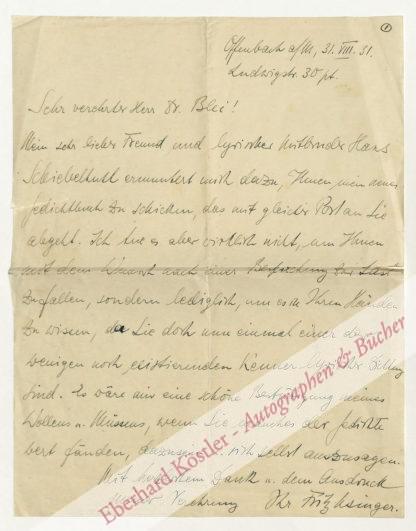 1
Offenbach a/M, 31. VIII. 31.
Ludwigstr. 30 pt.
Sehr verehrter Herr Dr. Blei!
Mein sehr lieber Freund und lyrischer Mitbruder Hans
Schiebelhuth ermuntert mich dazu, Ihnen mein neues
Gedichtbuch zu schicken, das mit gleicher Post an Sie
abgeht. Ich tue es aber wirklich nicht, um Ihnen
mit dem Wunsch nach einer Besprechung zur Last
zu fallen, sondern lediglich, um es in Ihren Händen
zu wissen, da Sie doch nun einmal einer der
wenigen noch existierenden Kenner lyrischer
sind. Es wäre mir eine schöne Bestätigung meines
Wollens u. Müssens, wenn Sie manches der Gedichte
wert fänden, sich selbst auszusagen.
Mit herzlichem Dank u. dem Ausdruck
Verehrung Ihr Fritz Usinger.
Eberhard Köstler - Autographen & Bücher